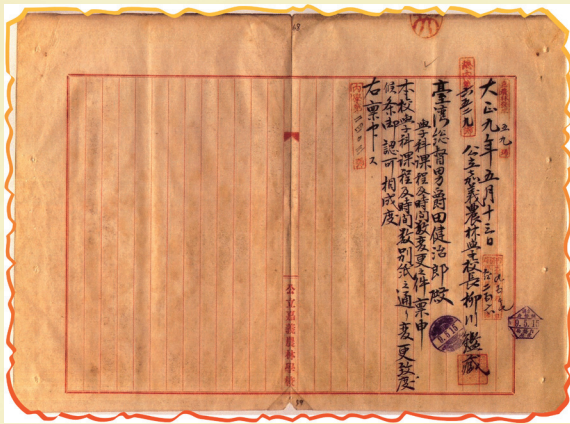 大正九年五月十三日
公立嘉義農林學校長柳川鑑藏
臺灣總督男爵田健治郎殿
學科課程及時間數変更ノ件稟申
本校學科課程及時間数別紙之通リ変更致度
候条御認可相成度
右稟申ス
公立嘉義農林學校
9.5.15